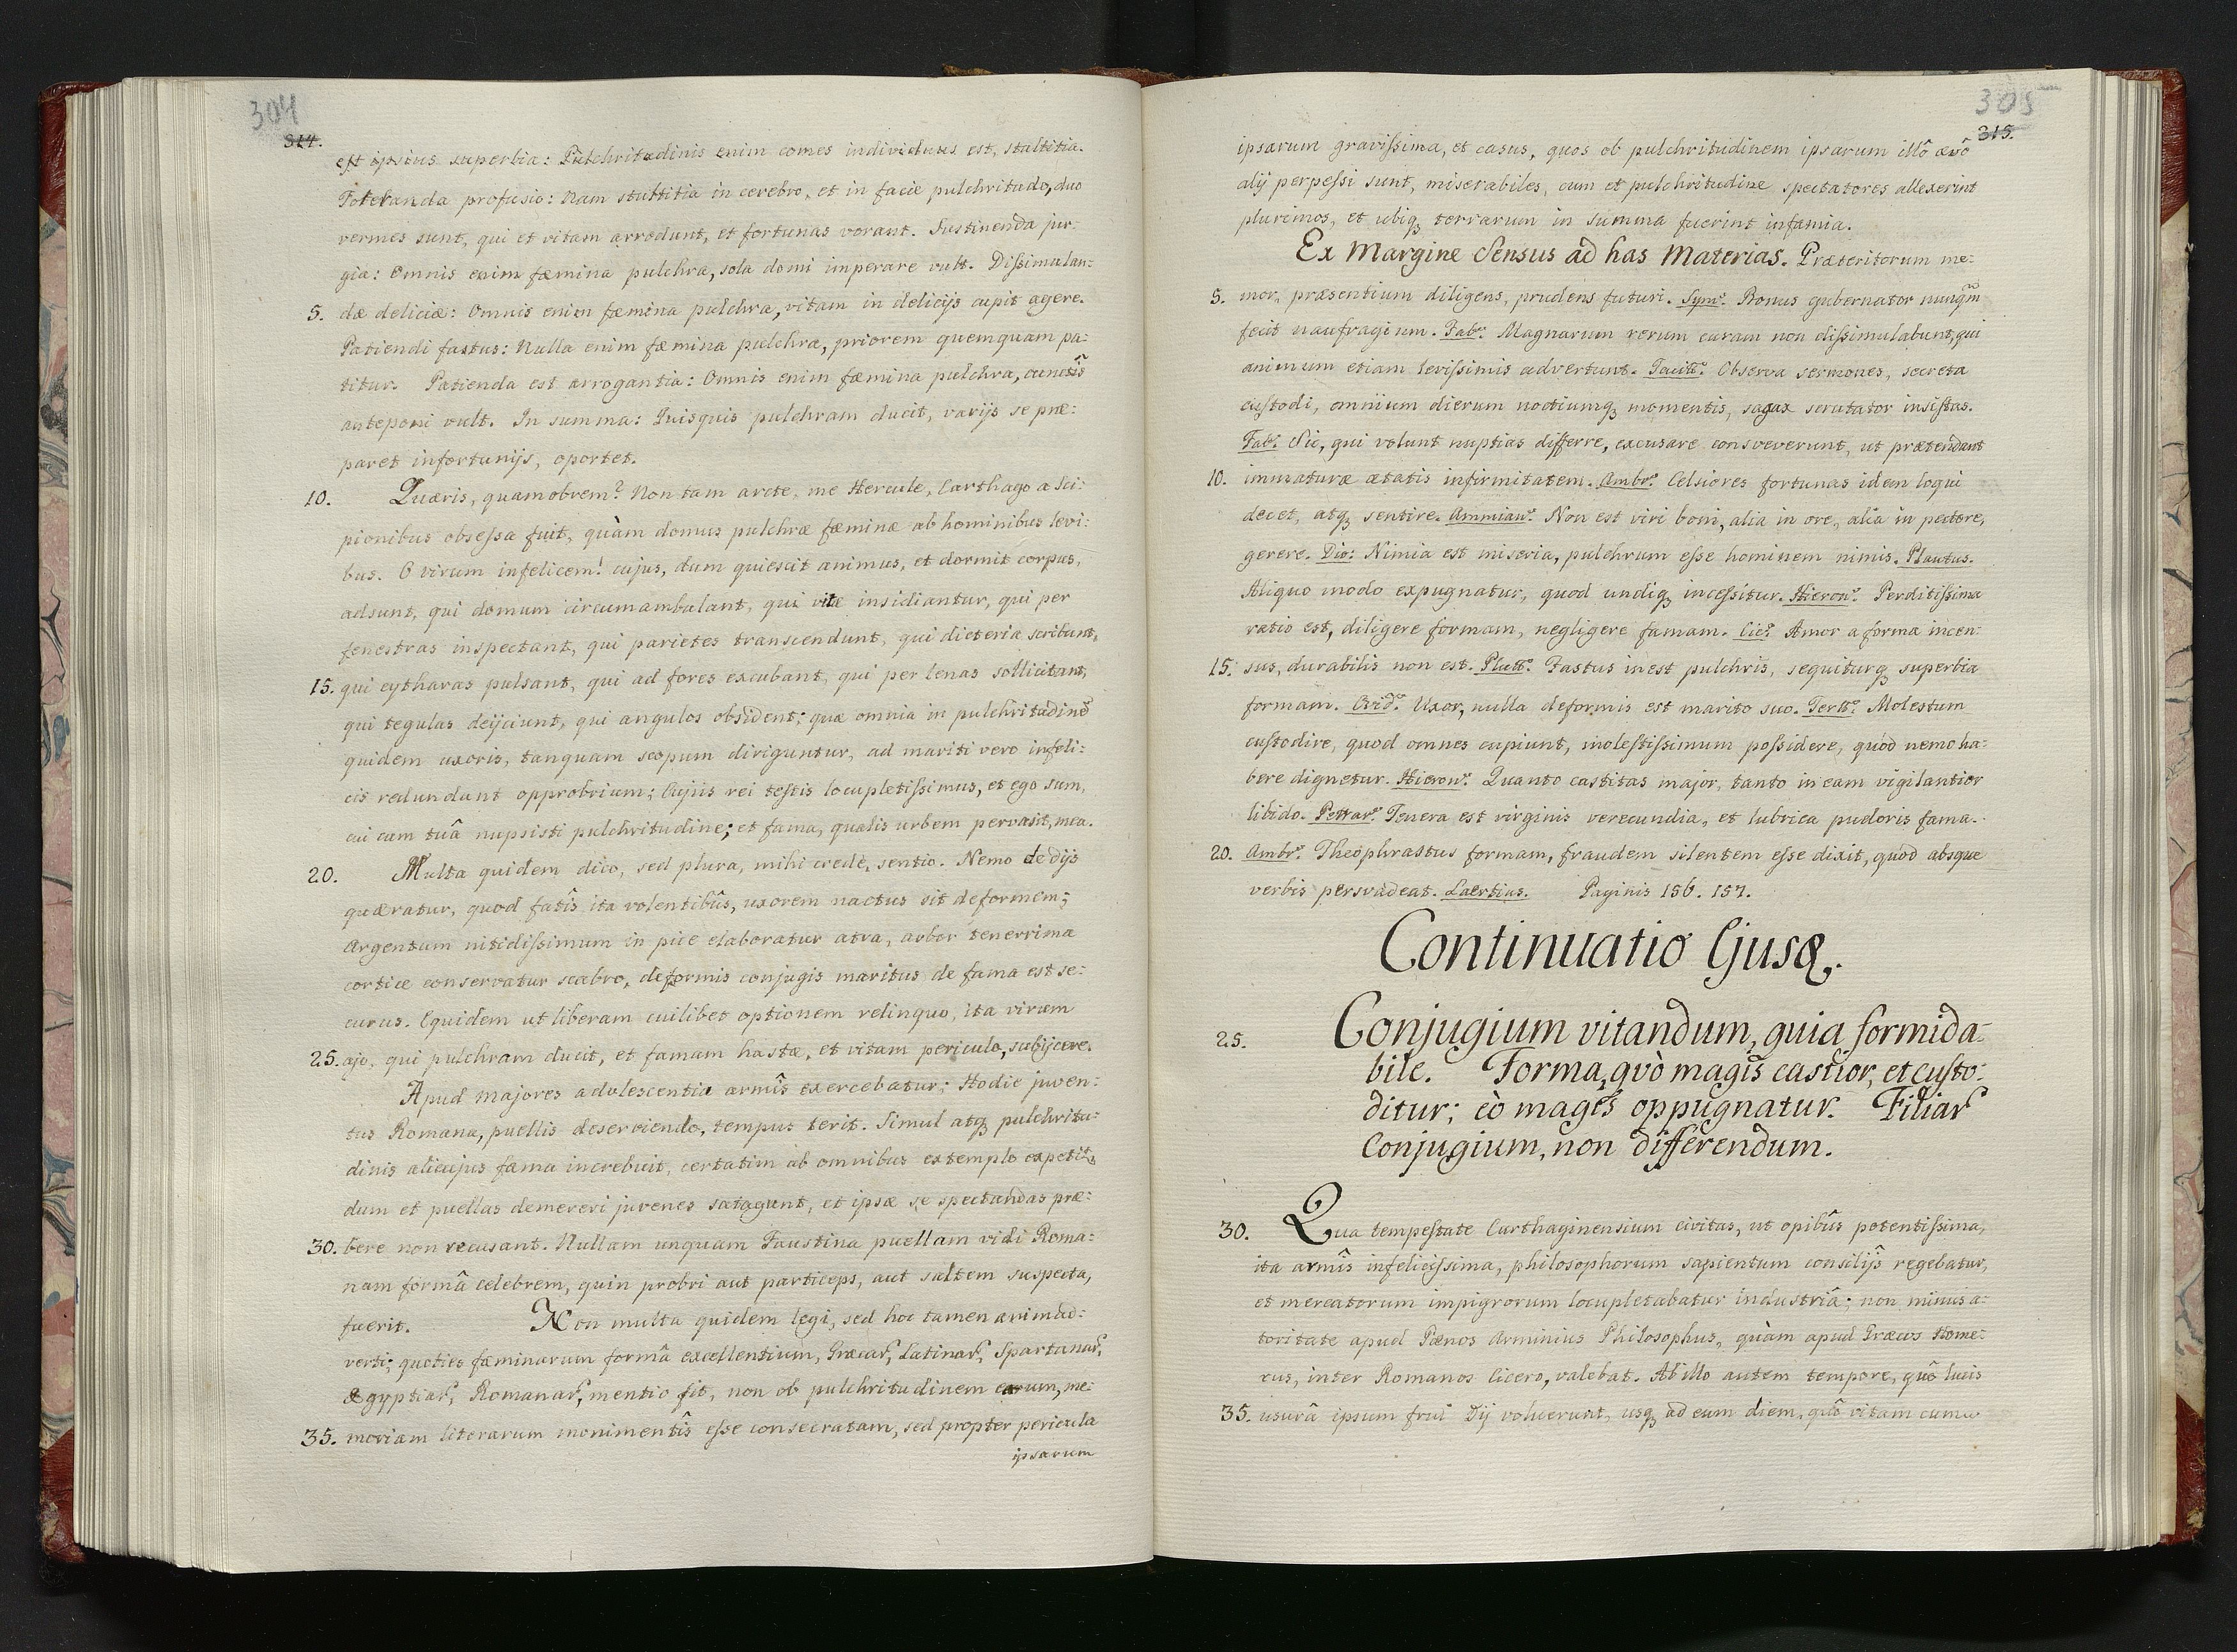 304
314.
est ipsius superbia: Pulchritudinis enim comes individuus est, stultitia.
Toleranda profusio: Nam stultitia in cerebro, et in facie pulchritudo, duo
vermes sunt, qui et vitam arrodunt, et fortunas vorant. Sustinenda jur:
gia: Omnis enim fæmina pulchra, sola domi imperare vult. Dissimulan:
5. dæ deliciæ: Omnis enim fæmina pulchra, vitam in delicijs cupit agere.
Patiendi fastus: Nulla enim fæmina pulchra, priorem quemquam pa:
titur. Patienda est arrogantia: Omnis enim fæmina pulchra, cunctîs
anteponi vult. In summa: Quisquis pulchram ducit, varijs se præ:
paret infortunijs, oportet.
10. Quæris, quamobrem? Non tam arcte, me Hercule, Carthago a Sci:
pionibus obsessa fuit, quàm domus pulchræ fæminæ ab hominibus levi:
bus. O virum infelicem! cujus, dum quiescit animus, et dormit corpus,
adsunt, qui domum circumambulant, qui vitæ insidiantur, qui per
fenestras inspectant, qui parietes transcendunt, qui dicteria scribunt,
15. qui cytharas pulsant, qui ad fores excubant, qui per lenas sollicitant,
qui tegulas dejiciunt, qui angulos obsident; quæ omnia in pulchritudinê
quidem uxoris, tanquam scopum diriguntur, ad mariti vero infeli:
cis redundant opprobrium; Cujus rei testis locupletissimus, et ego sum,
cui cum tuâ nupsisti pulchritudine; et fama, qualis urbem pervasit, mea.
20. Multa quidem dico, sed plura, mihi crede, sentio. Nemo de dijs
quæratur, quod fatîs ita volentibûs, uxorem nactus sit deformem;
Argentum nitidissimum in pice elaboratur atra, arbor tenerrima
cortice conservatur scabro, deformis conjugis maritus de fama est se:
curus. Equidem ut liberam cuilibet optionem relinquo, ita virum
25. ajo, qui pulchram ducit, et famam hastæ, et vitam periculo, subijcere.
Apud majores adolescentia armîs exercebatur; Hodie juven:
tus Romana, puellis deserviendo, tempus terit. Simul atq; pulchritu:
dinis alicujus fama increbuit, certatim ab omnibus extemplo expetit,
dum et puellas demereri juvenes satagunt, et ipsæ se spectandas præ:
30. bere non recusant. Nullam unquam Faustina puellam vidi Roma:
nam formâ celebrem, quin probri aut particeps, aut saltem suspecta,
fuerit. Non multa quidem legi, sed hoc tamen animad:
verti; quoties fæminarum formâ excellentium, Græcar̃, Latinar̃, Spartanar̃,
Ægyptiar̃, Romanar̃, mentio fit, non ob pulchritudinem earum, me:
35. moriam literarum monimentîs esse consecratam, sed propter pericula
ipsarum
305
315.
ipsarum gravissima, et casus, quos ob pulchritudinem ipsarum illô ævô
alij perpessi sunt, miserabiles, cum et pulchritudine spectatores allexerint
plurimos, et ubiq; terrarum in summa fuerint infamia.
Ex Margine Sensus ad has Materias. Præteritorum me:
5. mor, præsentium diligens, prudens futuri. Sym: Bonus gubernator nunq̃m
fecit naufragium. Fab: Magnarum rerum curam non dissimulabunt, qui
animum etiam levissimis advertunt. Tacitg: Observa sermones, secreta
custodi, omnium dierum noctiumq; momentis, sagax scrutator insistas.
Fab: Sic, qui volunt nuptias differre, excusare consveverunt, ut prætendant
10. immaturæ ætatis infirmitatem. Ambr: Celsiores fortunas idem loqui
decet, atq; sentire. Ammian: Non est viri boni, alia in ore, alia in pectore,
gerere. Dio: Nimia est miseria, pulchrum esse hominem nimis. Plautus.
Aliquo modo expugnatur, quod undiq; incessitur. Hieron: Perditissima
ratio est, diligere formam, negligere famam. Cic: Amor a forma incen:
15. sus, durabilis non est. Plutt: Fastus inest pulchris, sequiturq; superbia
formam. Ovid: Uxor, nulla deformis est marito suo. Tertt: Molestum
custodire, quod omnes cupiunt, molestissimum possidere, quod nemo ha:
bere dignetur. Hieron: Quanto castitas major, tanto in eam vigilantior
libido. Petrar: Tenera est virginis verecundia, et lubrica pudoris fama.
20. Ambr: Theophrastus formam, fraudem silentem esse dixit, quod absque
verbis persvadeat. Laertius. Paginis 156. 157.
Continuatio Ejusd.
25. Conjugium vitandum, quia formida:
bile. Forma, qvò magîs castior, et custo:
ditur; eò magîs oppugnatur. Filiar̃
Conjugium, non differendum.
30. Qua tempestate Carthaginensium civitas, ut opibûs potentissima,
ita armîs infelicissima, philosophorum sapientum consilijs regebatur,
et mercatorum impigrorum locupletabatur industriâ; non minus a:
toritate apud Pænos Arminius Philosophus, quàm apud Græcos Home:
rus, inter Romanos Cicero, valebat. Ab illo autem tempore, quô lucis
35. usurâ ipsum frui Dij voluerunt, usq; ad eum diem, quô vitam cum